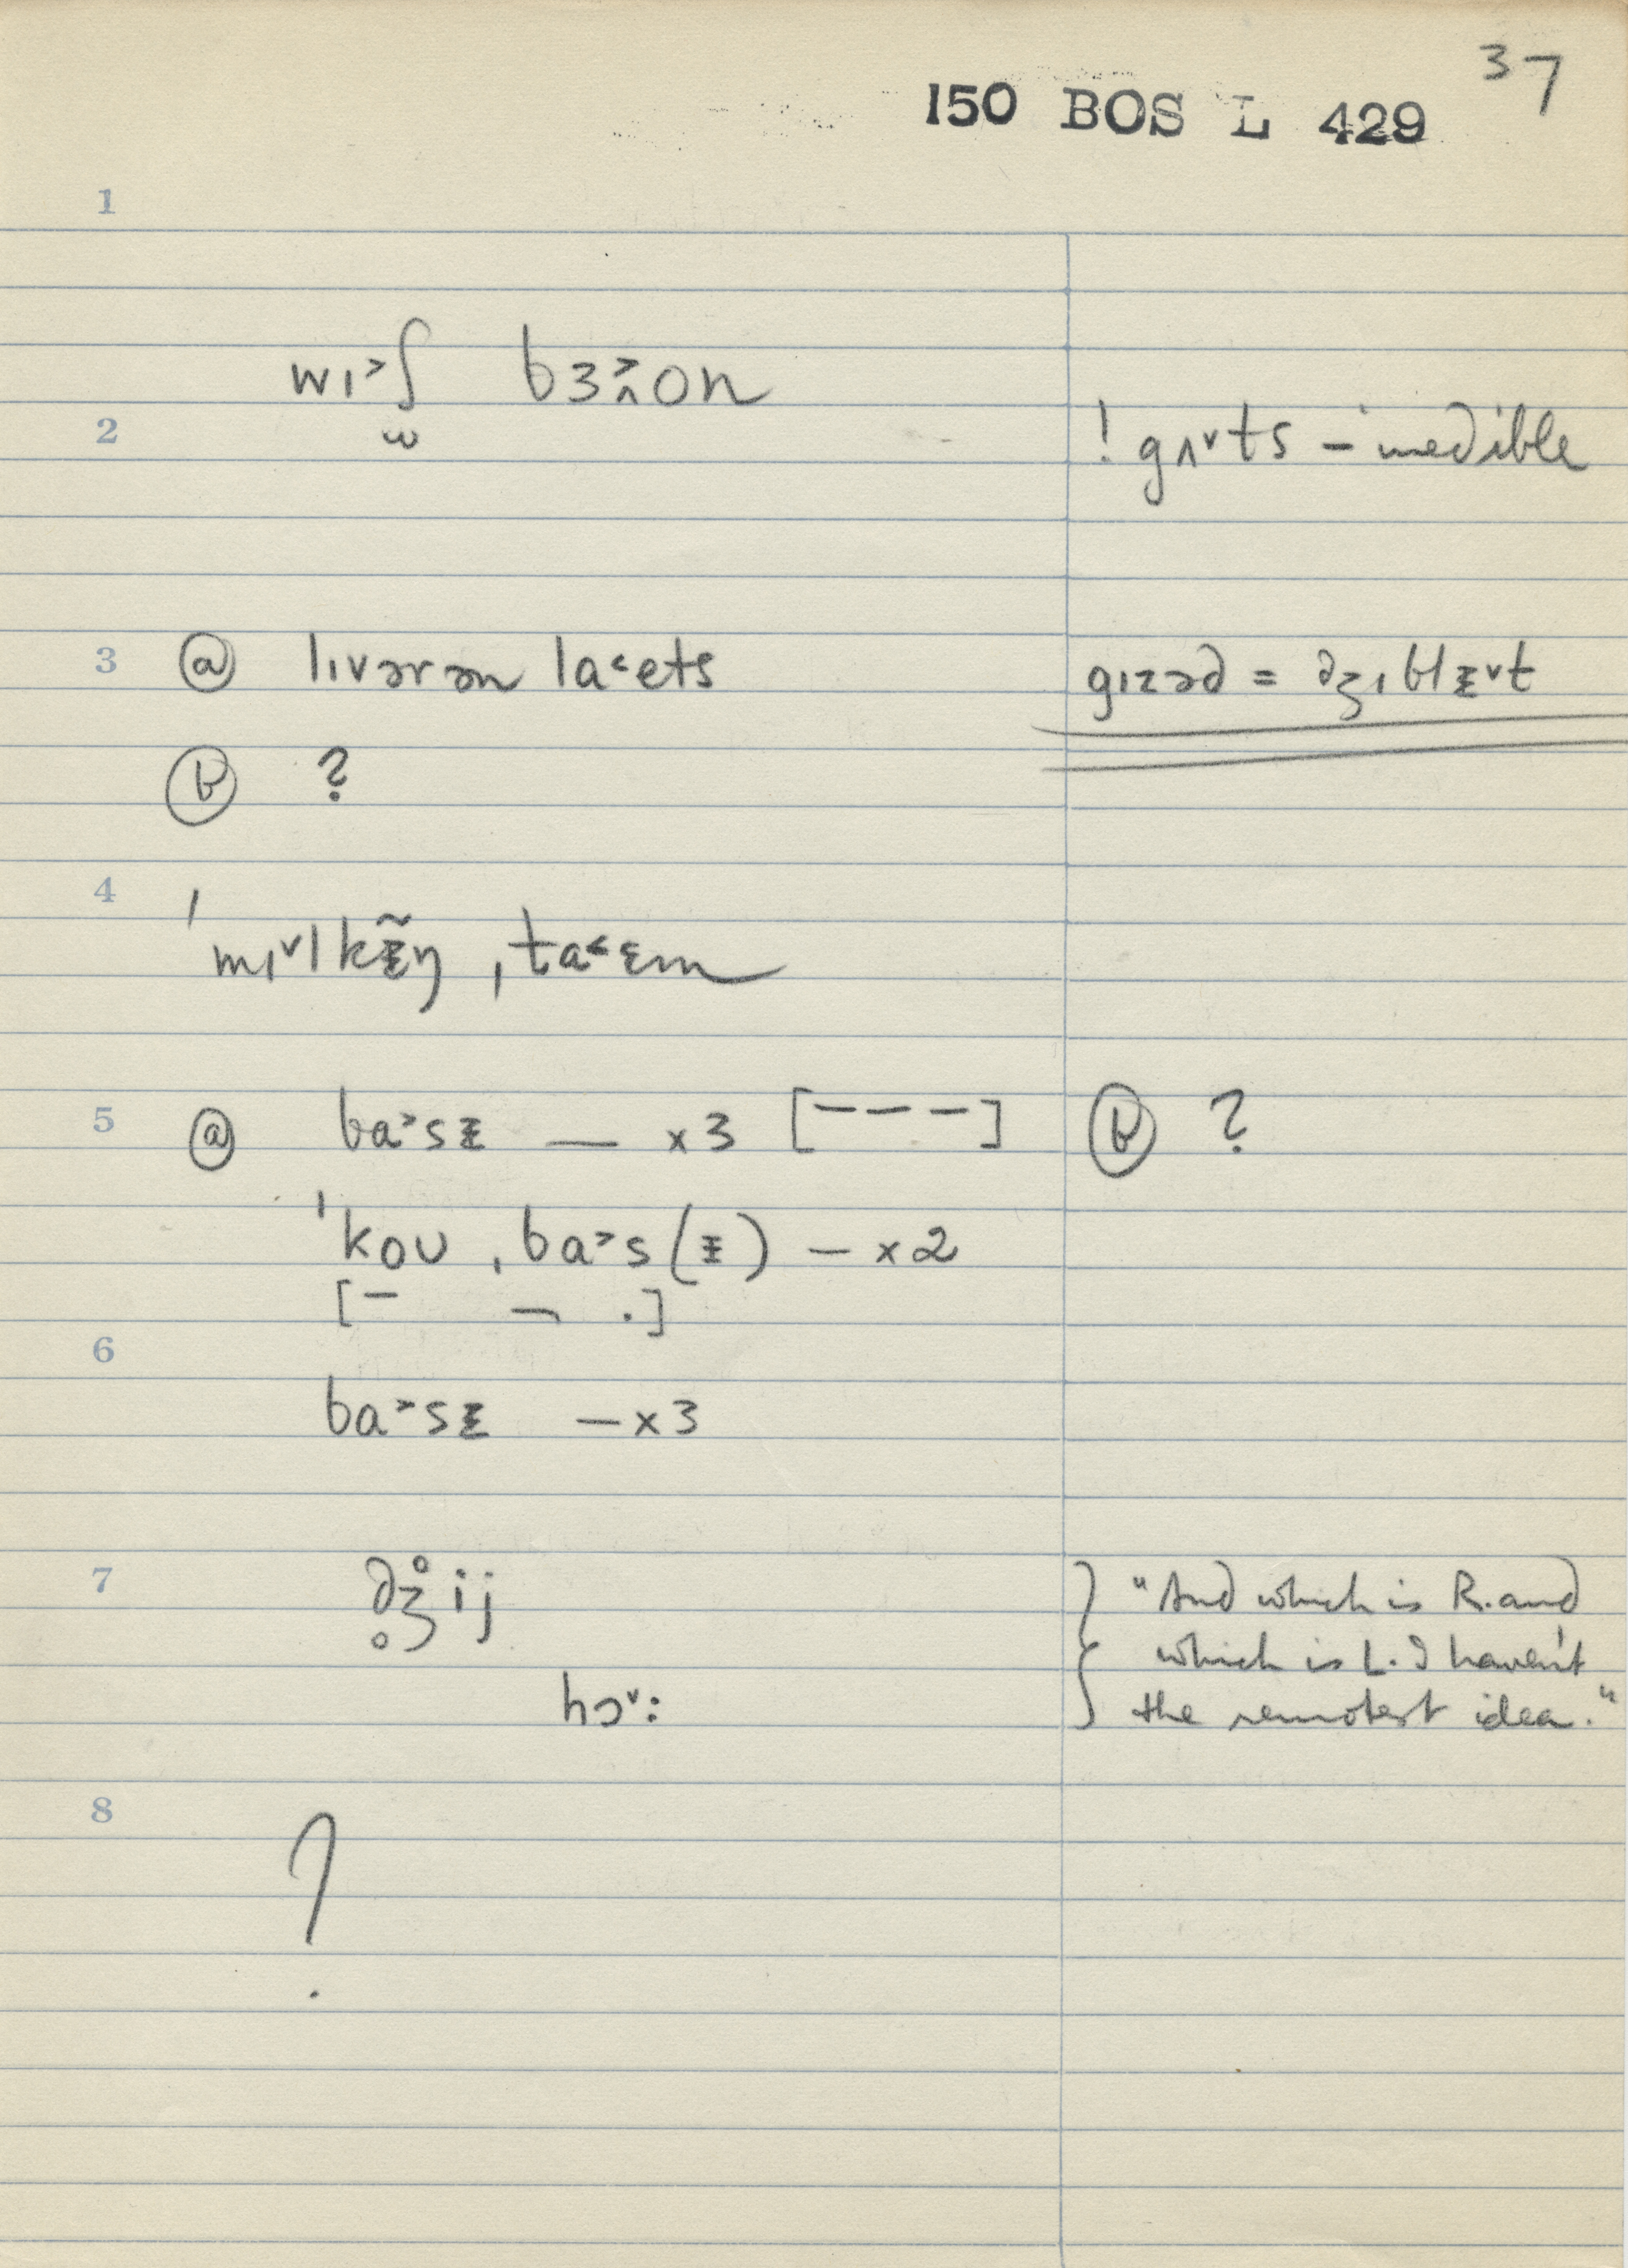 37
150 BOS L 429
1
wɪ˃ʃ bɜ˃ʌon
ω
2
! gʌ˅ts – inedible
3 ⓐ lɪvərən la˂ets
gɪzəd = dʒɪblᵻ˅t
ⓑ ?
4
ˈmɪ˅lkᵻ̃ŋ ˌta˂ɛm
5 ⓐ ba˃sᵻ — x3 [‾ ‾ ‾] ⓑ ?
ˈkoʊ ˌba˃s(ᵻ) – x2
[‾ ¬ .]
6
ba˃sᵻ – x3
7
d̥ʒ̊ij
hɔ˅:
"And which is R. and
which is L. I haven't
the remotest idea."
8
?